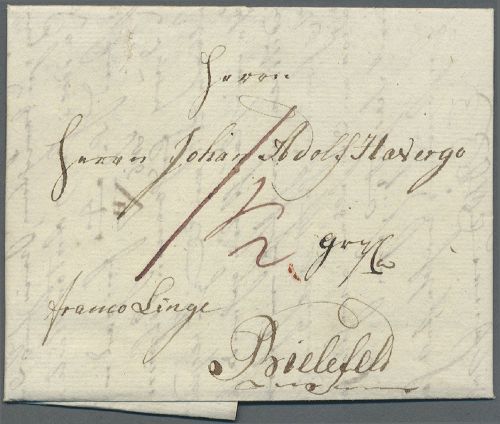 Herrn
Herrn Johan Adolf Havergo
1/2
franco Linge
Bielefeld